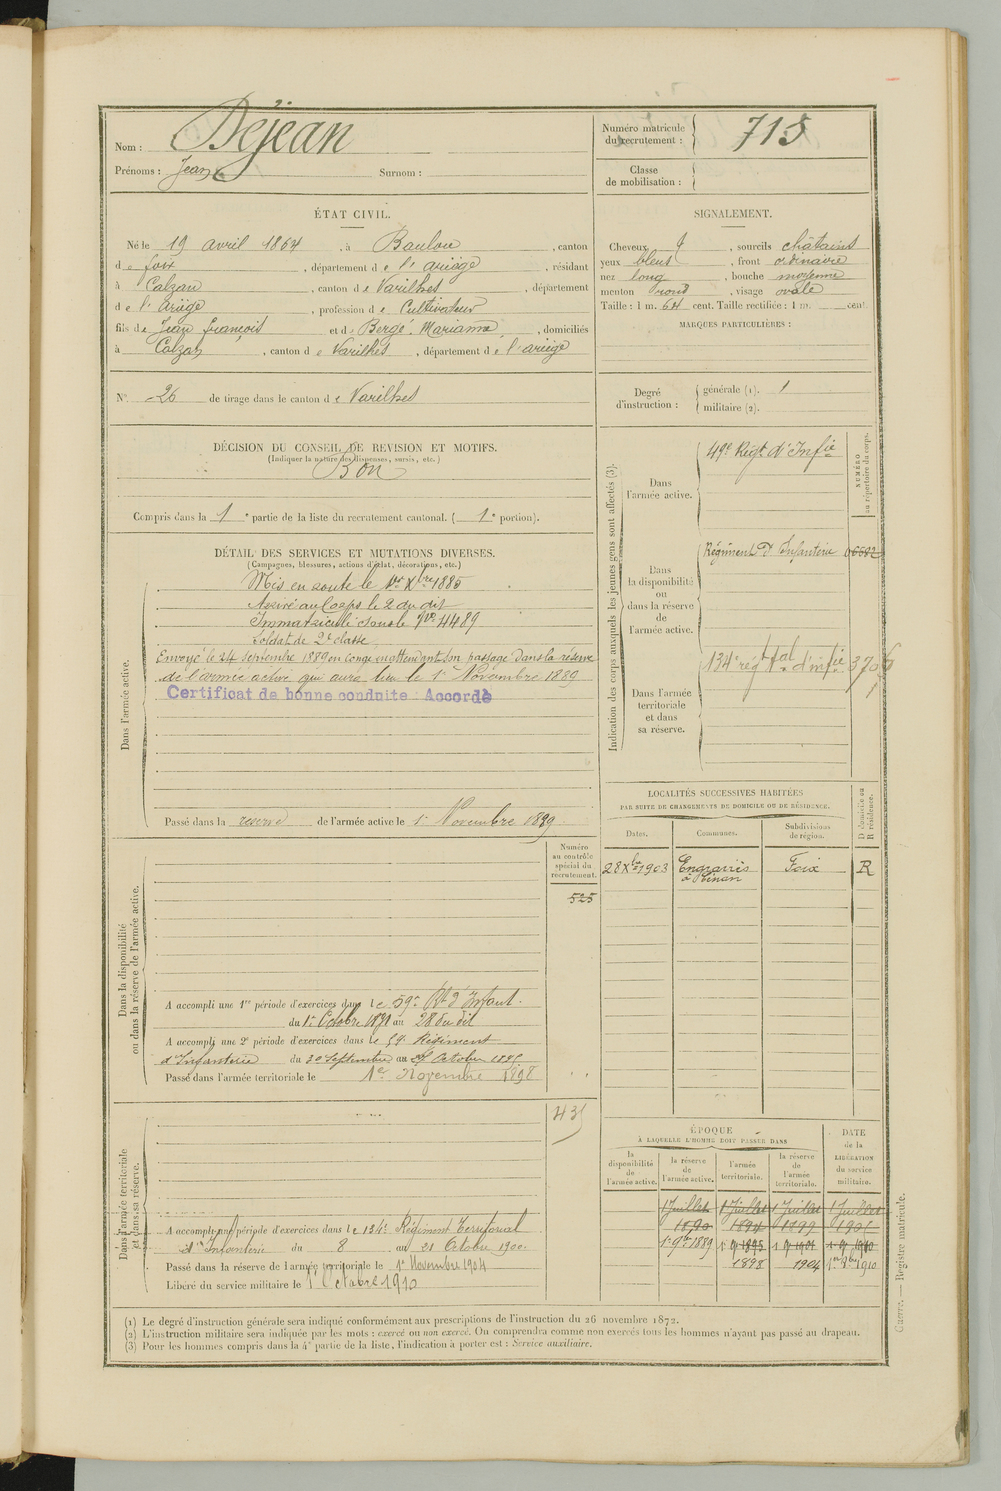 Nom : Déjean
Prénoms : Jean Surnom :
Numéro matricule du recrutement : 715
Classe de mobilisation :
ÉTAT CIVIL.
Né le 19 avril 1864, à Baulou, canton
de foix, département de l'ariège, résidant
à Calzan, canton de Varilhes, département
de l'ariège, profession de Cultivateur
fils de Jean françois et de Bergé Marianne, domiciliés
à Calzan, canton de Varilhes, département de l'ariège
N° 26 de tirage dans le canton de Varilhes
SIGNALEMENT.
Cheveux, sourcils châtains
yeux bleus, front ordinaire
nez long, bouche moyenne
menton rond, visage ovale
Taille : 1 m. 64 cent. Taille rectifiée : 1 m. cent.
MARQUES PARTICULIÈRES :
Degré d'instruction : générale (1). militaire (2).
DÉCISION DU CONSEIL DE REVISION ET MOTIFS.
(Indiquer la nature des dispenses, sursis, etc.)
Bon
Compris dans la 1e partie de la liste du recrutement cantonal. (1e portion).
DÉTAIL DES SERVICES ET MUTATIONS DIVERSES.
(Campagnes, blessures, actions d'éclat, décorations, etc.)
Dans l'armée active.
Mis en route le 1er Xbre 1885
Arrivé au Corps le 2 du dit
Immatriculé sous le N° 4489
Soldat de 2e classe
Envoyé le 24 Septembre 1889 en congé en attendant son passage dans la réserve
de l'armée active qui aura lieu le 1er Novembre 1889
Certificat de bonne conduite Accordé
Passé dans la réserve de l'armée active le 1er Novembre 1889
Indication des corps auxquels les jeunes gens sont affectés (3).
NUMÉRO au répertoire du corps.
Dans l'armée active.
49e Régt d'Infie
Dans la disponibilité ou dans la réserve de l'armée active.
Régiment d'Infanterie
Dans l'armée territoriale et dans sa réserve.
134e régt tal d'infie
LOCALITÉS SUCCESSIVES HABITÉES
PAR SUITE DE CHANGEMENTS DE DOMICILE OU DE RÉSIDENCE.
D domicile ou R résidence.
Dates. Communes. Subdivisions de région.
28 Xbre 1903 Engraviès Foix R
Dans la disponibilité ou dans la réserve de l'armée active.
Numéro au contrôle spécial du recrutement.
525
A accompli une 1re période d'exercices dans le 59e Rt d'Infant.
du 1er Octobre 1891 au 28 du dit
A accompli une 2e période d'exercices dans le 59e Régiment
d'Infanterie du 30 Septembre au 27 Octobre
Passé dans l'armée territoriale le 1er Novembre 1898
Dans l'armée territoriale et dans sa réserve.
A accompli une période d'exercices dans le 134e Régiment Territorial
d'Infanterie du 8 au 21 Octobre 1900
Passé dans la réserve de l'armée territoriale le 1er Novembre 1904
Libéré du service militaire le 1er Octobre 1910
ÉPOQUE
À LAQUELLE L'HOMME DOIT PASSER DANS
DATE de la LIBÉRATION du service militaire.
la disponibilité de l'armée active. la réserve de l'armée active. l'armée territoriale. la réserve de l'armée territoriale.
1 Juillet 1 Juillet 1 Juillet 1 Juillet
1890 1899
1er 9bre 1889
1898 1904 1910
(1) Le degré d'instruction générale sera indiqué conformément aux prescriptions de l'instruction du 26 novembre 1872.
(2) L'instruction militaire sera indiquée par les mots : exercé ou non exercé. On comprendra comme non exercés tous les hommes n'ayant pas passé au drapeau.
(3) Pour les hommes compris dans la 4e partie de la liste, l'indication à porter est : Service auxiliaire.
Guerre. — Registre matricule.